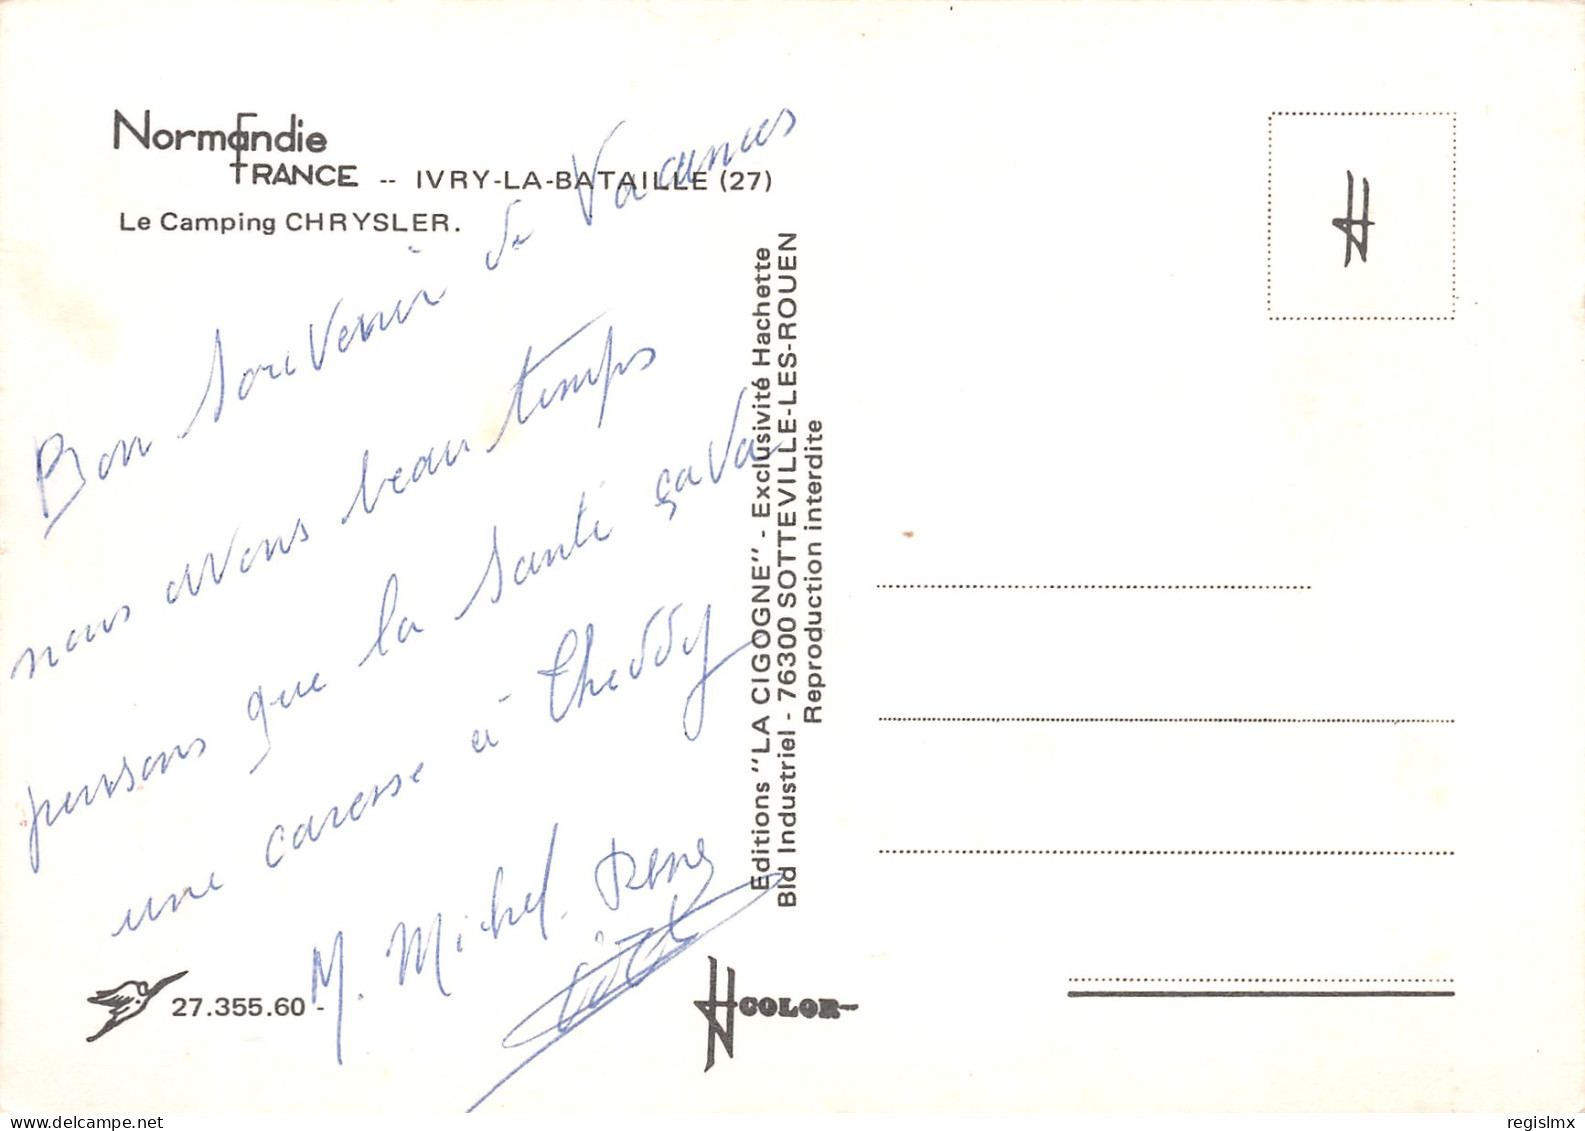 Normandie
FRANCE -- IVRY-LA-BATAILLE (27)
Le Camping CHRYSLER.
Bon souvenir de Vacances
nous avons beau temps
pensons que la santé ça va
une caresse à Cheddy
M. Michel. René
27.355.60 -
COLOR
Editions "LA CIGOGNE" - Exclusivité Hachette
Bld Industriel - 76300 SOTTEVILLE-LES-ROUEN
Reproduction interdite
regislmx